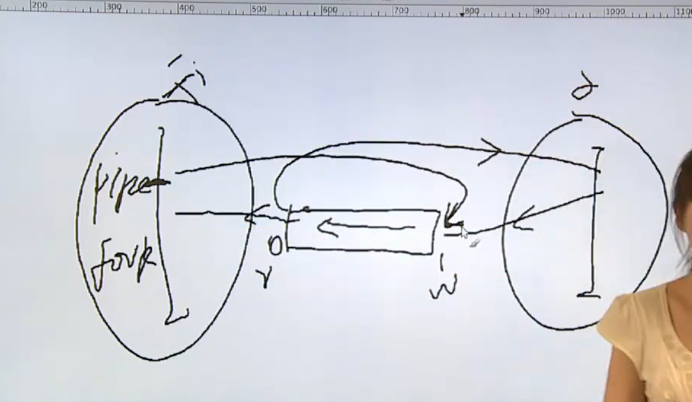 200 300 400 500 600 700 800 900 1000 1100
父
子
pipe
fork
0
r
1
w